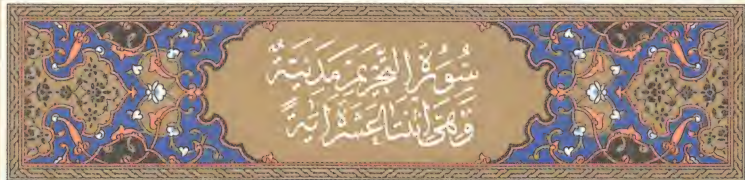 سُورَةُ التَّحْرِيمِ مَدَنِيَّةٌ
وَهِيَ اثْنَتَا عَشْرَةَ اٰيَةً